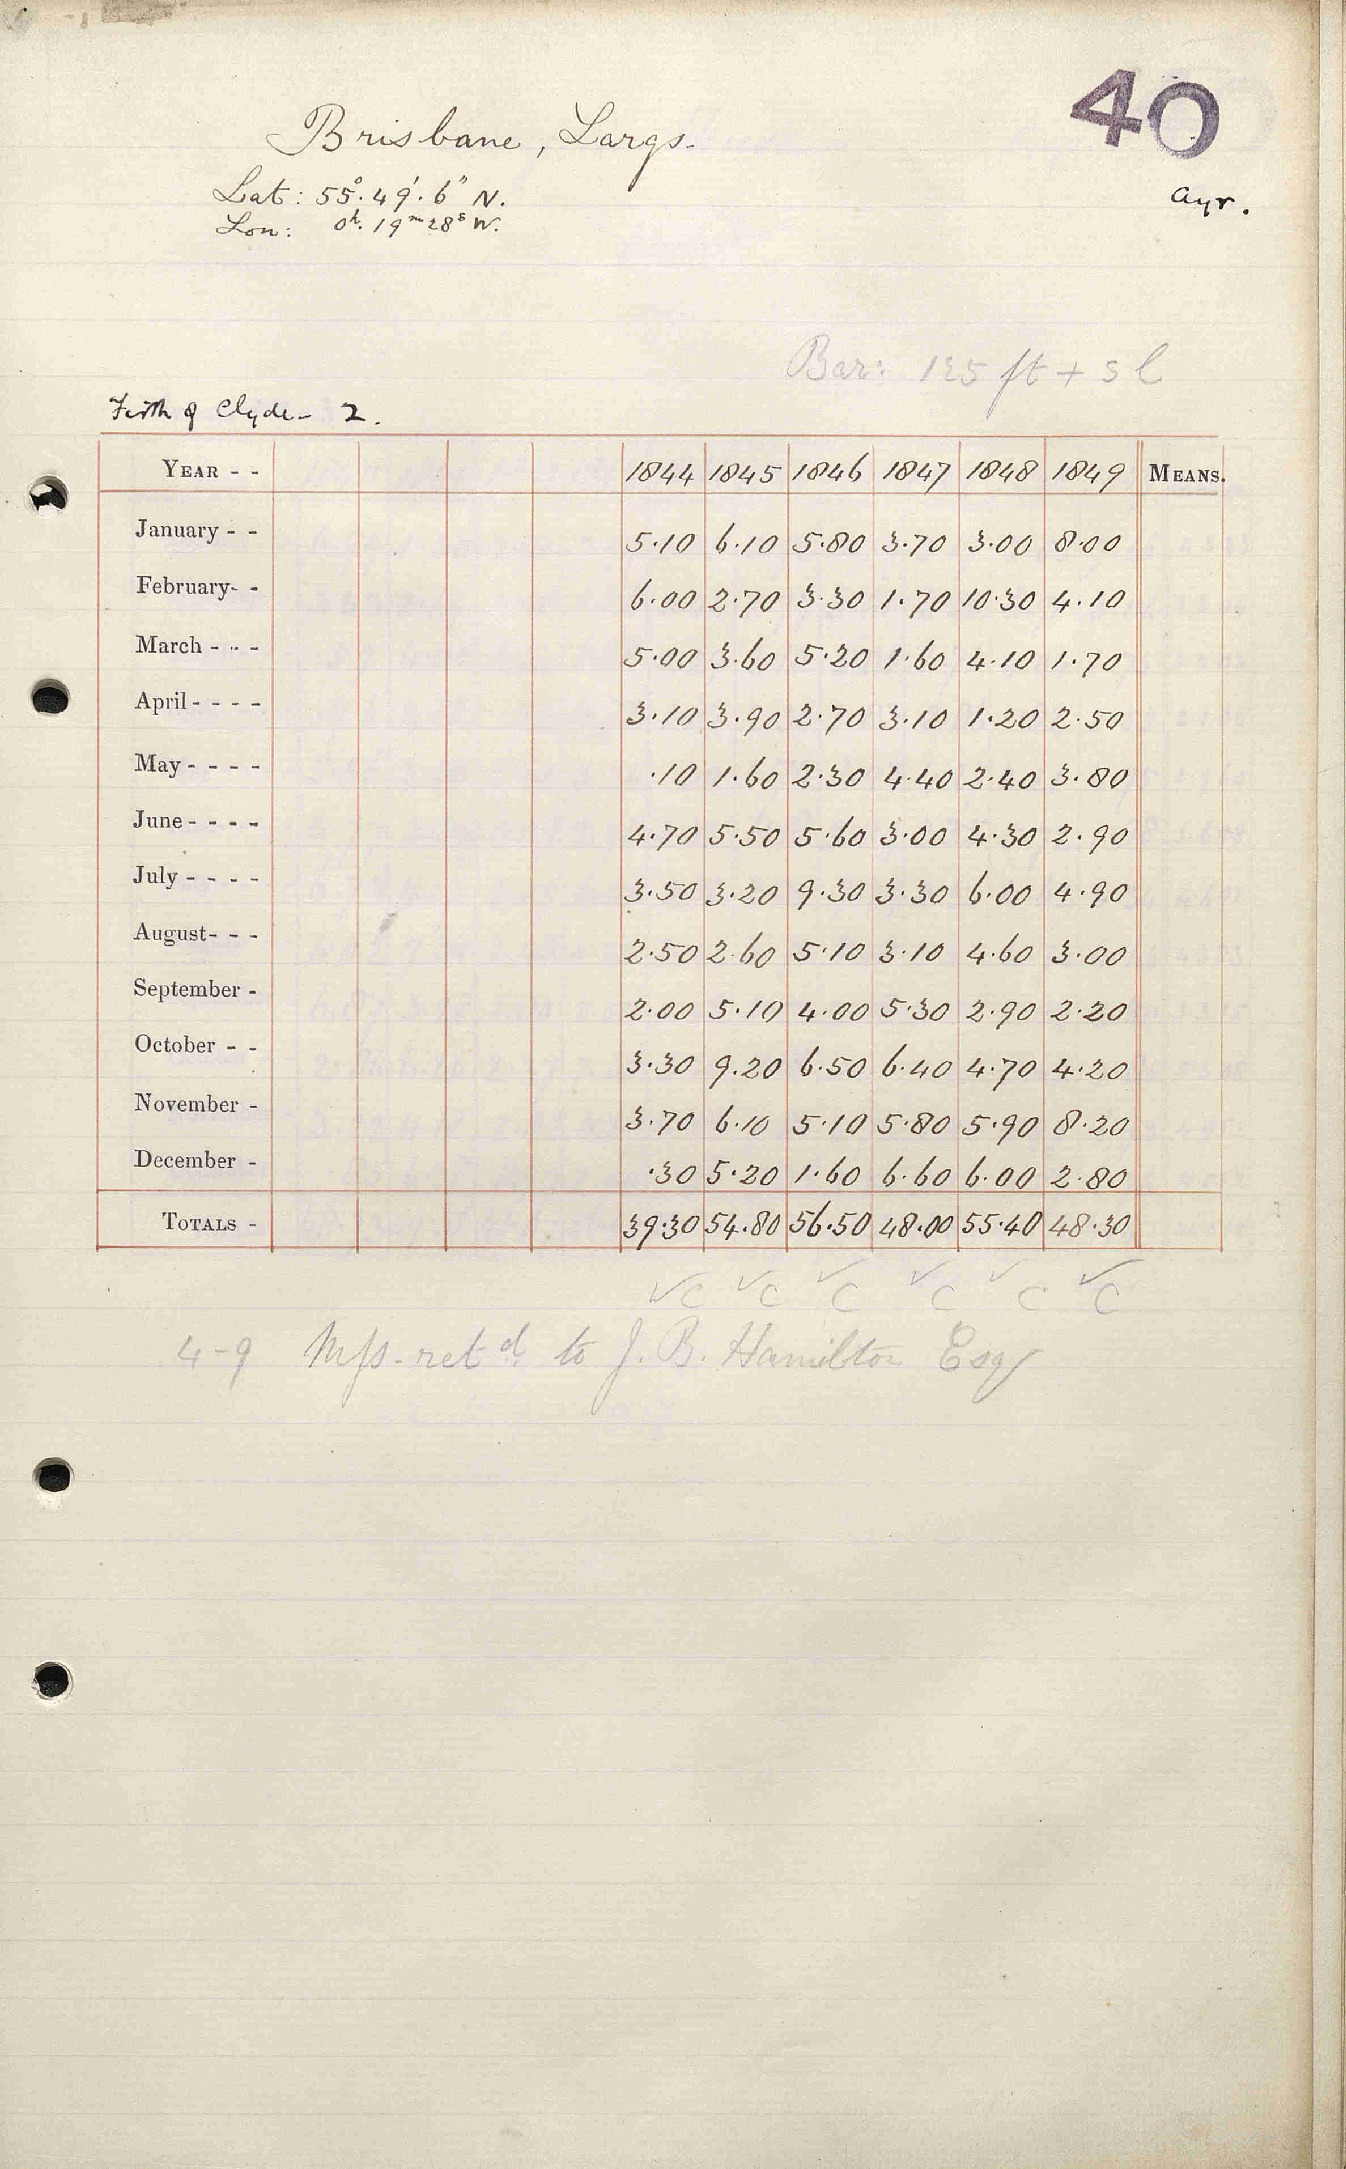 40
Brisbane, Largs.
Lat: 55°. 49'. 6" N.
Ayr.
Lon: 0h. 19m 28s W.
Bar: 125 ft + s l
Firth of Clyde - 2.
YEAR - - 1844 1845 1846 1847 1848 1849 MEANS.
January - - 5.10 6.10 5.80 3.70 3.00 8.00
February- - 6.00 2.70 3.30 1.70 10.30 4.10
March - - - 5.00 3.60 5.20 1.60 4.10 1.70
April - - - - 3.10 3.90 2.70 3.10 1.20 2.50
May - - - - .10 1.60 2.30 4.40 2.40 3.80
June - - - - 4.70 5.50 5.60 3.00 4.30 2.90
July - - - - 3.50 3.20 9.30 3.30 6.00 4.90
August- - - 2.50 2.60 5.10 3.10 4.60 3.00
September - 2.00 5.10 4.00 5.30 2.90 2.20
October - - 3.30 9.20 6.50 6.40 4.70 4.20
November - 3.70 6.10 5.10 5.80 5.90 8.20
December - .30 5.20 1.60 6.60 6.00 2.80
TOTALS - 39.30 54.80 56.50 48.00 55.40 48.30
✓C ✓C ✓C ✓C ✓C ✓C
4-9 Mss. retd. to J. B. Hamilton Esq